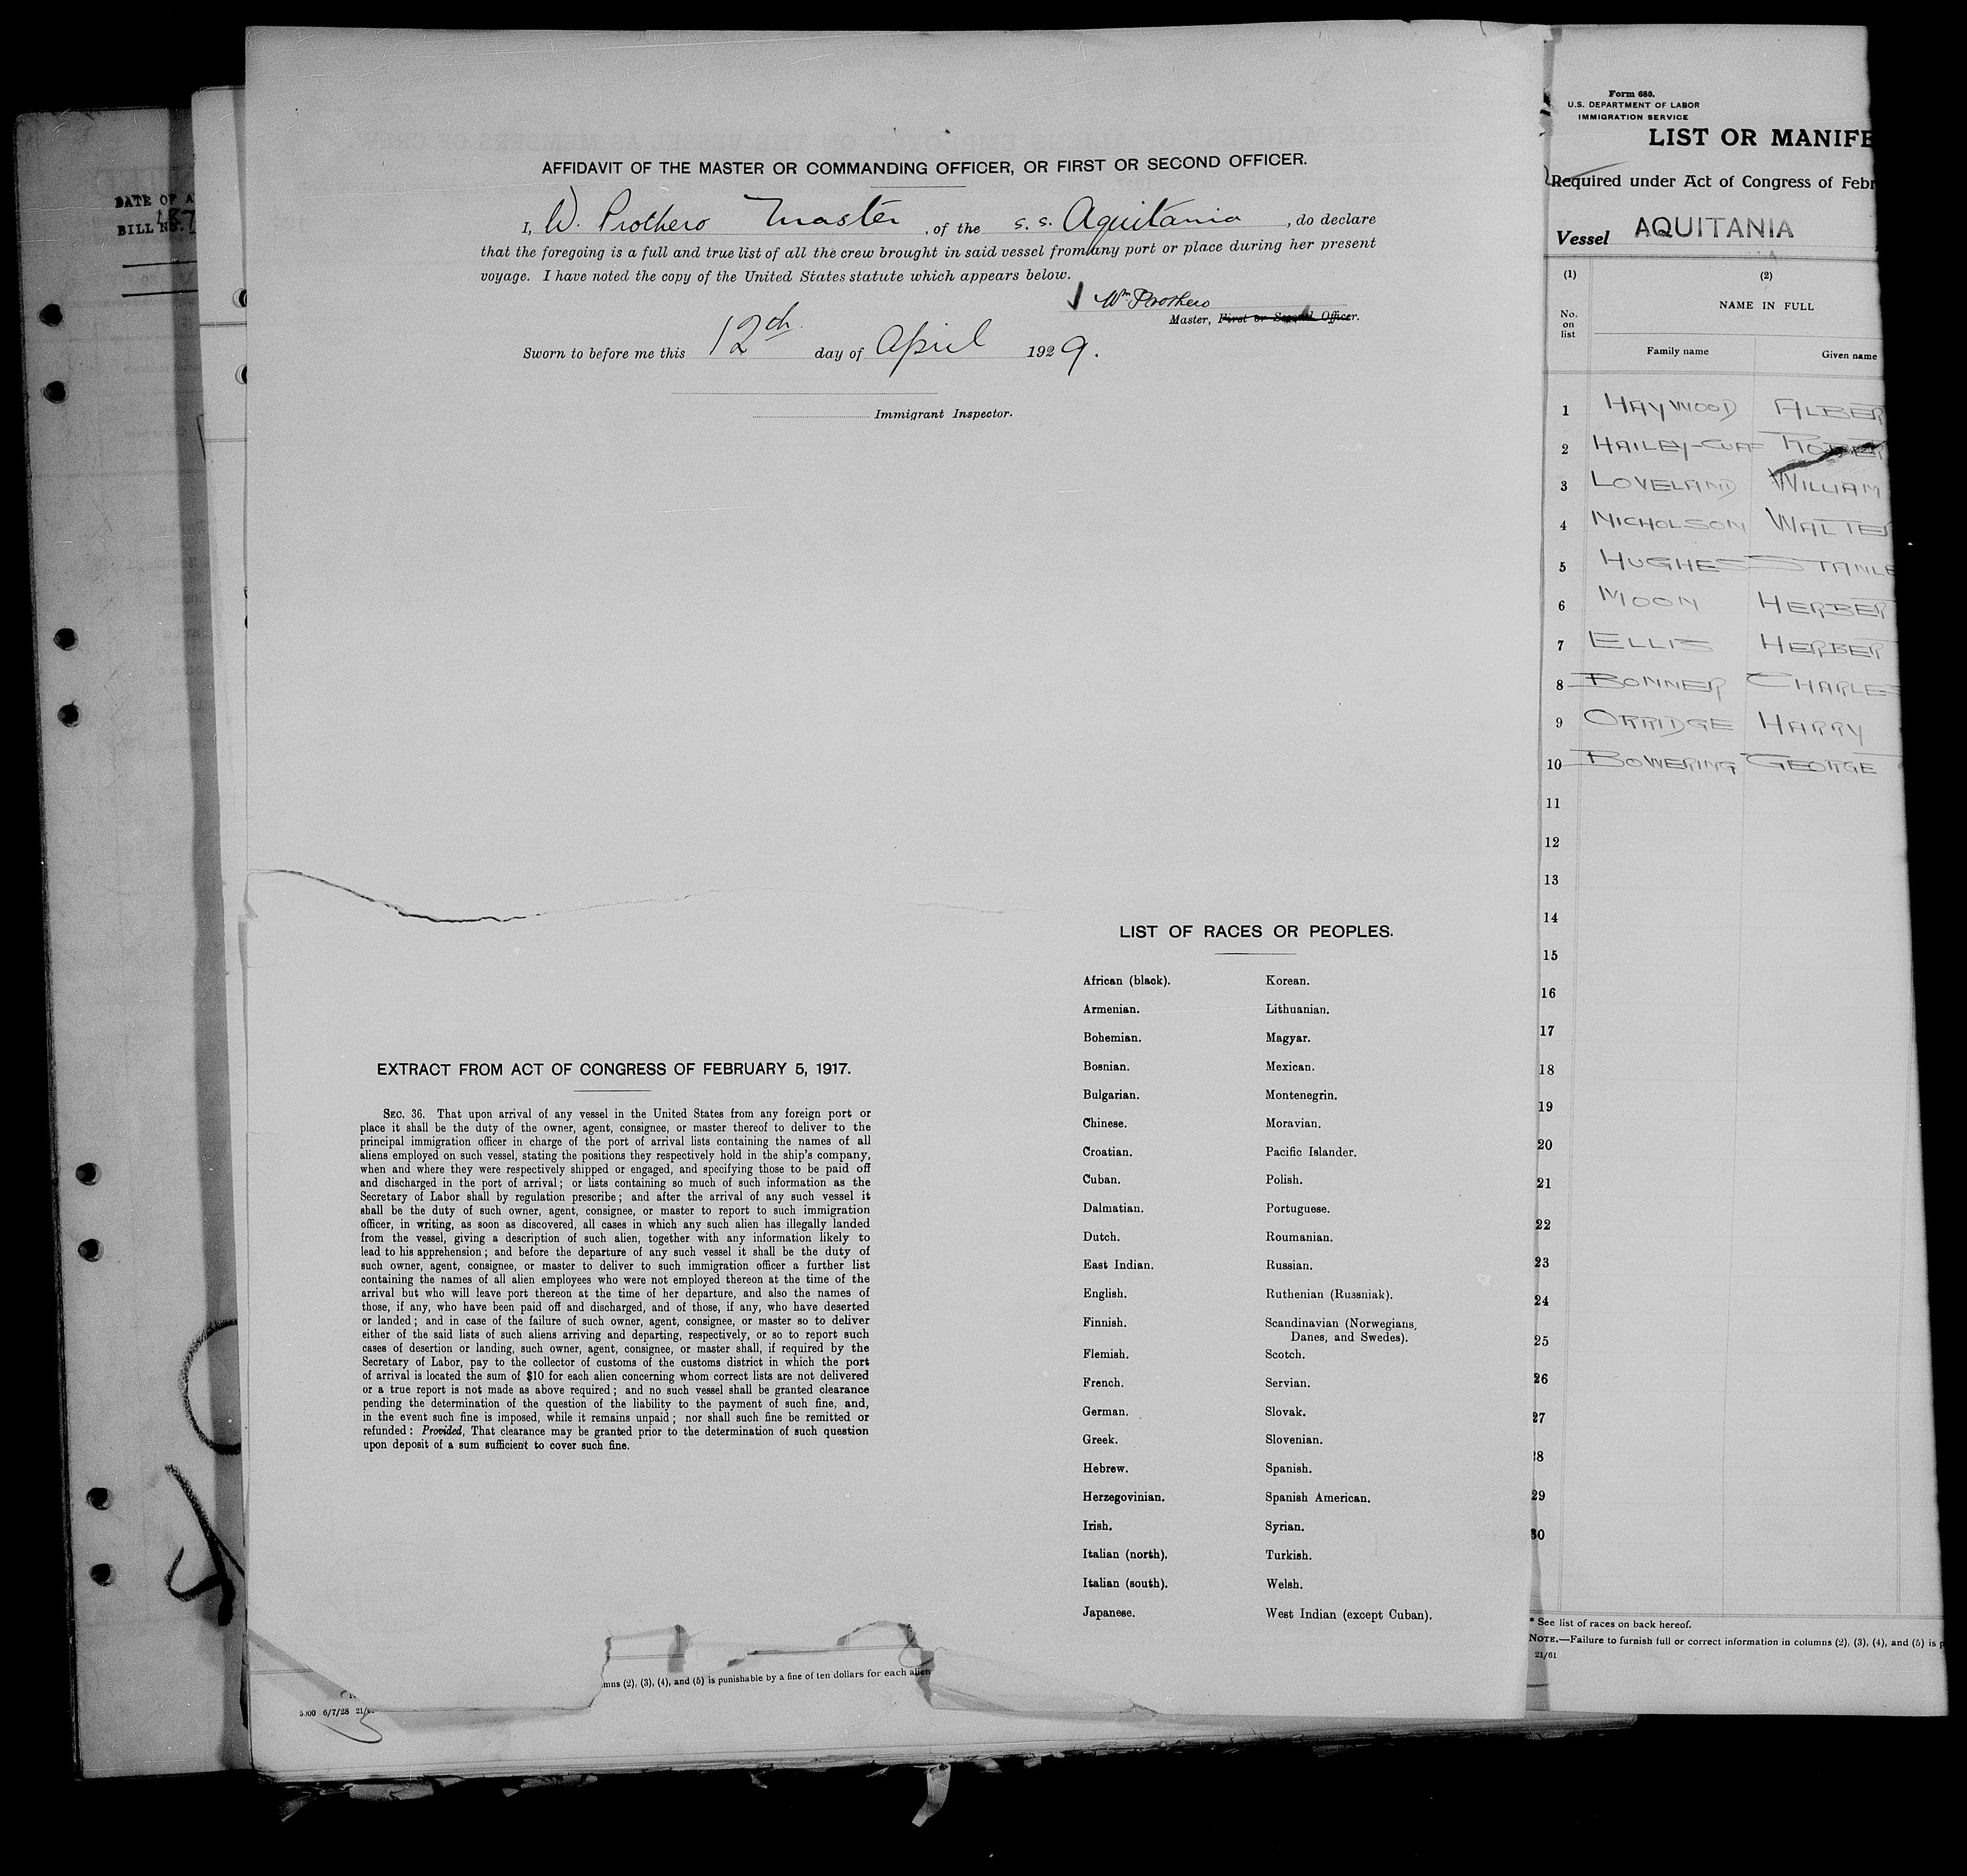 DATE OF A
BILL NO. 187
AFFIDAVIT OF THE MASTER OR COMMANDING OFFICER, OR FIRST OR SECOND OFFICER.
I, W. Prothero Master, of the s. s. Aquitania, do declare
that the foregoing is a full and true list of all the crew brought in said vessel from any port or place during her present
voyage. I have noted the copy of the United States statute which appears below.
Wm Prothero
Master, First or Second Officer.
Sworn to before me this 12th day of April 1929.
Immigrant Inspector.
EXTRACT FROM ACT OF CONGRESS OF FEBRUARY 5, 1917.
SEC. 36. That upon arrival of any vessel in the United States from any foreign port or
place it shall be the duty of the owner, agent, consignee, or master thereof to deliver to the
principal immigration officer in charge of the port of arrival lists containing the names of all
aliens employed on such vessel, stating the positions they respectively hold in the ship's company,
when and where they were respectively shipped or engaged, and specifying those to be paid off
and discharged in the port of arrival; or lists containing so much of such information as the
Secretary of Labor shall by regulation prescribe; and after the arrival of any such vessel it
shall be the duty of such owner, agent, consignee, or master to report to such immigration
officer, in writing, as soon as discovered, all cases in which any such alien has illegally landed
from the vessel, giving a description of such alien, together with any information likely to
lead to his apprehension; and before the departure of any such vessel it shall be the duty of
such owner, agent, consignee, or master to deliver to such immigration officer a further list
containing the names of all alien employees who were not employed thereon at the time of the
arrival but who will leave port thereon at the time of her departure, and also the names of
those, if any, who have been paid off and discharged, and of those, if any, who have deserted
or landed; and in case of the failure of such owner, agent, consignee, or master so to deliver
either of the said lists of such aliens arriving and departing, respectively, or so to report such
cases of desertion or landing, such owner, agent, consignee, or master shall, if required by the
Secretary of Labor, pay to the collector of customs of the customs district in which the port
of arrival is located the sum of $10 for each alien concerning whom correct lists are not delivered
or a true report is not made as above required; and no such vessel shall be granted clearance
pending the determination of the question of the liability to the payment of such fine, and,
in the event such fine is imposed, while it remains unpaid; nor shall such fine be remitted or
refunded: Provided, That clearance may be granted prior to the determination of such question
upon deposit of a sum sufficient to cover such fine.
LIST OF RACES OR PEOPLES.
African (black). Korean.
Armenian. Lithuanian.
Bohemian. Magyar.
Bosnian. Mexican.
Bulgarian. Montenegrin.
Chinese. Moravian.
Croatian. Pacific Islander.
Cuban. Polish.
Dalmatian. Portuguese.
Dutch. Roumanian.
East Indian. Russian.
English. Ruthenian (Russniak).
Finnish. Scandinavian (Norwegians,
Danes, and Swedes).
Flemish. Scotch.
French. Servian.
German. Slovak.
Greek. Slovenian.
Hebrew. Spanish.
Herzegovinian. Spanish American.
Irish. Syrian.
Italian (north). Turkish.
Italian (south). Welsh.
Japanese. West Indian (except Cuban).
mns (2), (3), (4), and (5) is punishable by a fine of ten dollars for each alien
5000 6/7/28 21/6
Form 680.
U.S. DEPARTMENT OF LABOR
IMMIGRATION SERVICE
LIST OR MANIFE
Required under Act of Congress of Febr
Vessel AQUITANIA
(1) (2)
No. on list
NAME IN FULL
Family name Given name
1 HAYWOOD ALBER
2 HAILEY-CUFF ROBER
3 LOVELAND WILLIAM
4 NICHOLSON WALTER
5 HUGHES STANLE
6 MOON HERBER
7 ELLIS HERBER
8 BONNER CHARLES
9 ORRIDGE HARRY
10 BOWERING GEORGE
11
12
13
14
15
16
17
18
19
20
21
22
23
24
25
26
27
28
29
30
* See list of races on back hereof.
NOTE.—Failure to furnish full or correct information in columns (2), (3), (4), and (5) is p
21/61